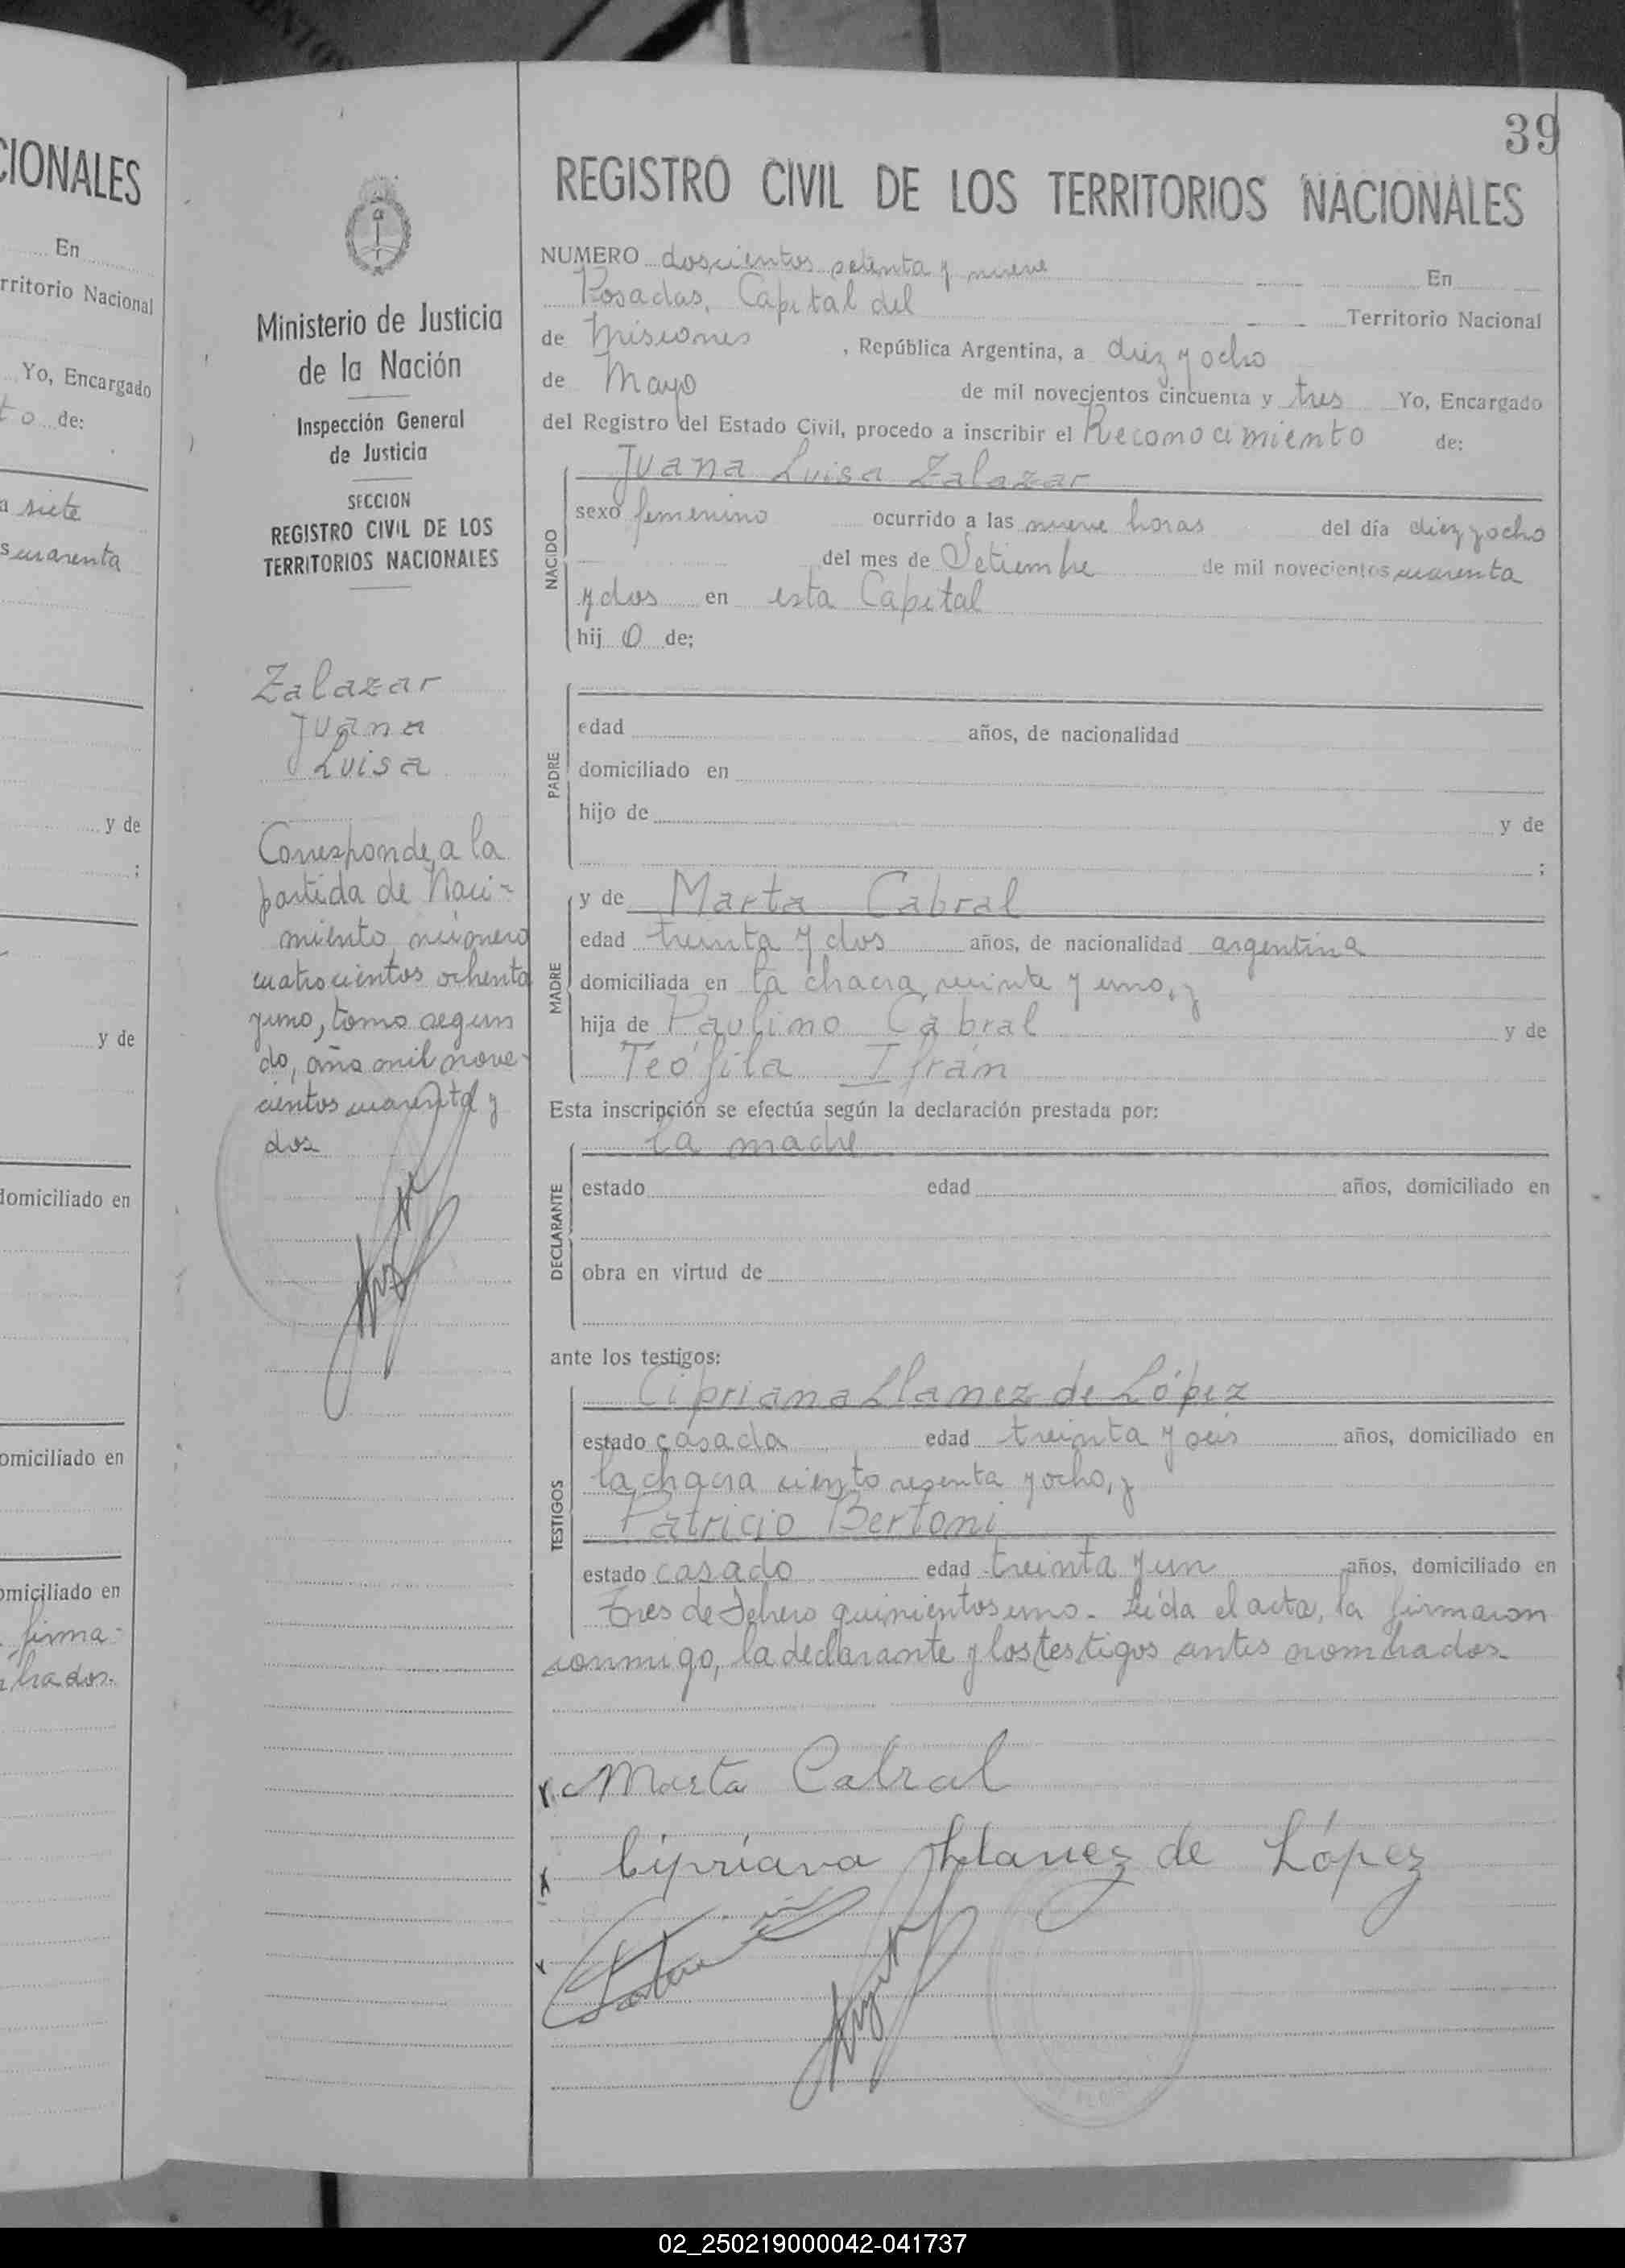 CIONALES
En
rritorio Nacional
Yo, Encargado
to de:
a siete
s cuarenta
y de
;
y de
domiciliado en
omiciliado en
omiciliado en
firma-
hados.
Ministerio de Justicia
de la Nación
Inspección General
de Justicia
SECCION
REGISTRO CIVIL DE LOS
TERRITORIOS NACIONALES
Zalazar
Juana
Luisa
Corresponde a la
partida de Naci-
miento número
cuatrocientos ochenta
y uno, tomo segun
do, año mil nove-
cientos cuarenta y
dos
39
REGISTRO CIVIL DE LOS TERRITORIOS NACIONALES
NUMERO doscientos setenta y nueve En
Posadas, Capital del Territorio Nacional
de Misiones , República Argentina, a diez y ocho
de Mayo de mil novecientos cincuenta y tres Yo, Encargado
del Registro del Estado Civil, procedo a inscribir el Reconocimiento de:
NACIDO
Juana Luisa Zalazar
sexo femenino ocurrido a las nueve horas del día diez y ocho
del mes de Setiembre de mil novecientos cuarenta
y dos en esta Capital
hij o de;
PADRE
edad años, de nacionalidad
domiciliado en
hijo de y de
;
MADRE
y de Marta Cabral
edad treinta y dos años, de nacionalidad argentina
domiciliada en la chacra veinte y uno, y
hija de Paulino Cabral y de
Teófila Ifrán
Esta inscripción se efectúa según la declaración prestada por:
DECLARANTE
la madre
estado edad años, domiciliado en
obra en virtud de
ante los testigos:
TESTIGOS
Cipriana Llanez de López
estado casada edad treinta y seis años, domiciliado en
la chacra ciento sesenta y ocho, y
Patricio Bertoni
estado casado edad treinta y un años, domiciliado en
Tres de Febrero quinientos uno. Leída el acta, la firmaron
conmigo, la declarante y los testigos antes nombrados.
Marta Cabral
Cipriana Llanez de López
02_250219000042-041737